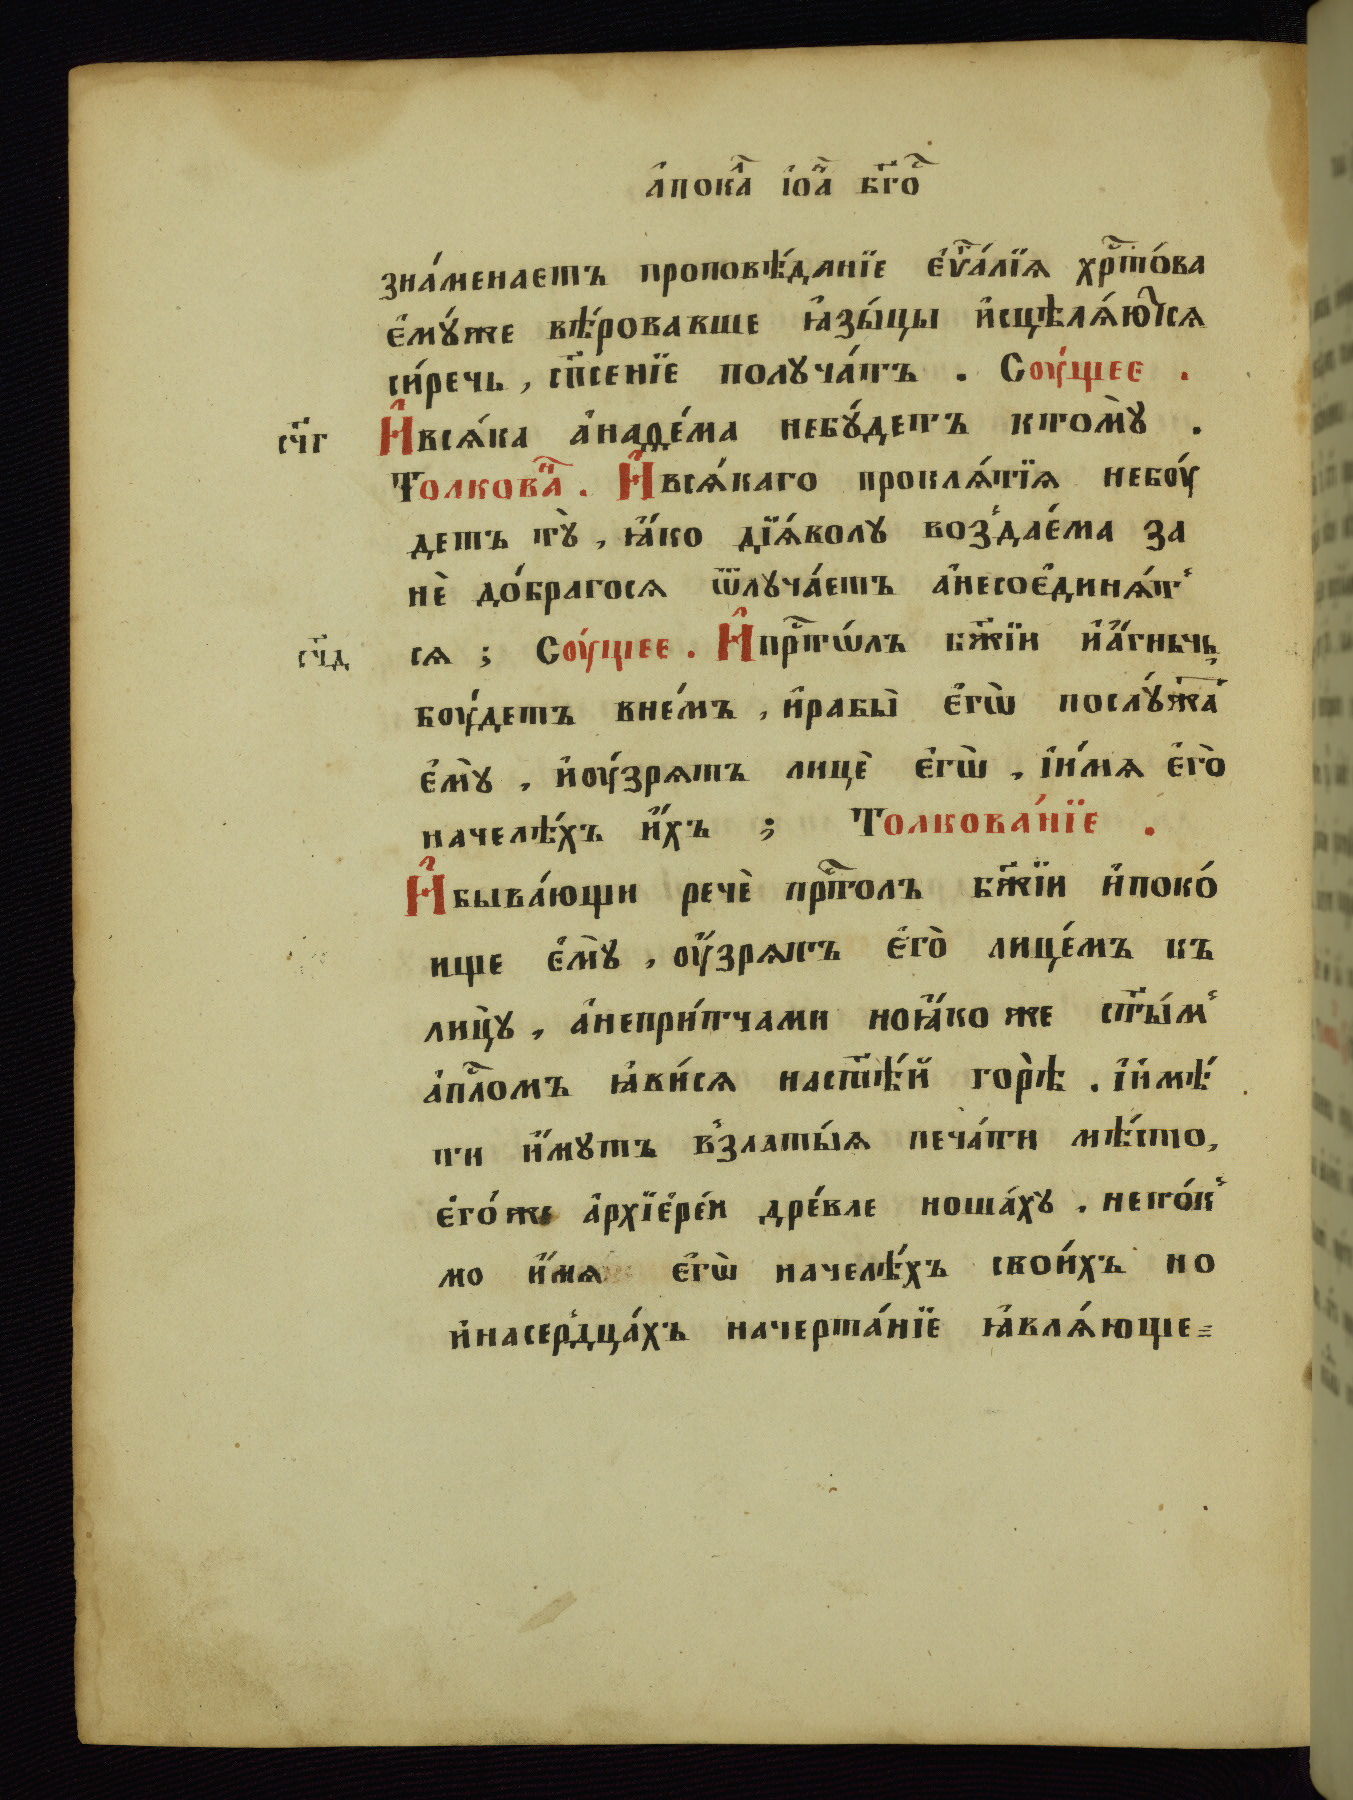 а҆пока́л і҆оа́н бг҃о́с
зна́менаетъ проповѣ́даніе є҆ѵⷢ҇а́лїѧ хрⷭ҇то́ва
є҆мꙋ́же вѣ́ровавше ꙗ҆зы́цы и҆сцѣлѧ́ютсѧ
си́речь, сп҃сенїе получа́тъ . Соу́щее .
сч҃г И҆всѧ́ка а҆наѳе́ма небꙋ́детъ ктомꙋ̀ .
Толкова́н . И҆всѧ́каго проклѧ́тїѧ небоу́
детъ тꙋ̀ , ꙗ҆́ко дїѧ́волꙋ воз̾дае́ма за
нѐ до́брагосѧ ѿлꙋча́етъ а҆несоє҆динѧ́т̾
сч҃д сѧ ; Соу́щее . И҆прⷭ҇тѡ́лъ бж҃їи и҆а҆́гньчь
боу́детъ вне́мъ , и҆рабы̀ є҆гѡ̀ послꙋ́жат̾
є҆мꙋ̀ , и҆оу҆́зрѧтъ лицѐ є҆гѡ̀ , і҆и́мѧ є҆го̀
начелѣ́хъ и҆́хъ ; Толкова́нїе .
И҆быва́ющи речѐ прⷭ҇толъ бж҃їи и҆поко́
ище є҆мꙋ̀ , оу҆́зрѧтъ є҆го̀ лице́мъ къ
лицꙋ̀ , а҆непри́тчами ноꙗ҆́коже ст҃ы́м̾
а҆пⷭ҇ломъ ꙗ҆ви́сѧ наст҃ѣ́й горѣ̀ . і҆и҆мѣ́
ти и҆́мꙋтъ в̾златы́ѧ печа́ти мѣ́сто,
є҆го́же а҆рхїе҆ре́и дре́вле ноша́хꙋ . нето́к̾
мо и҆́мѧ є҆гѡ̀ начелѣ́хъ свои́хъ но
и҆насерⷣца́хъ начерта́нїе ꙗ҆влѧ́юще=